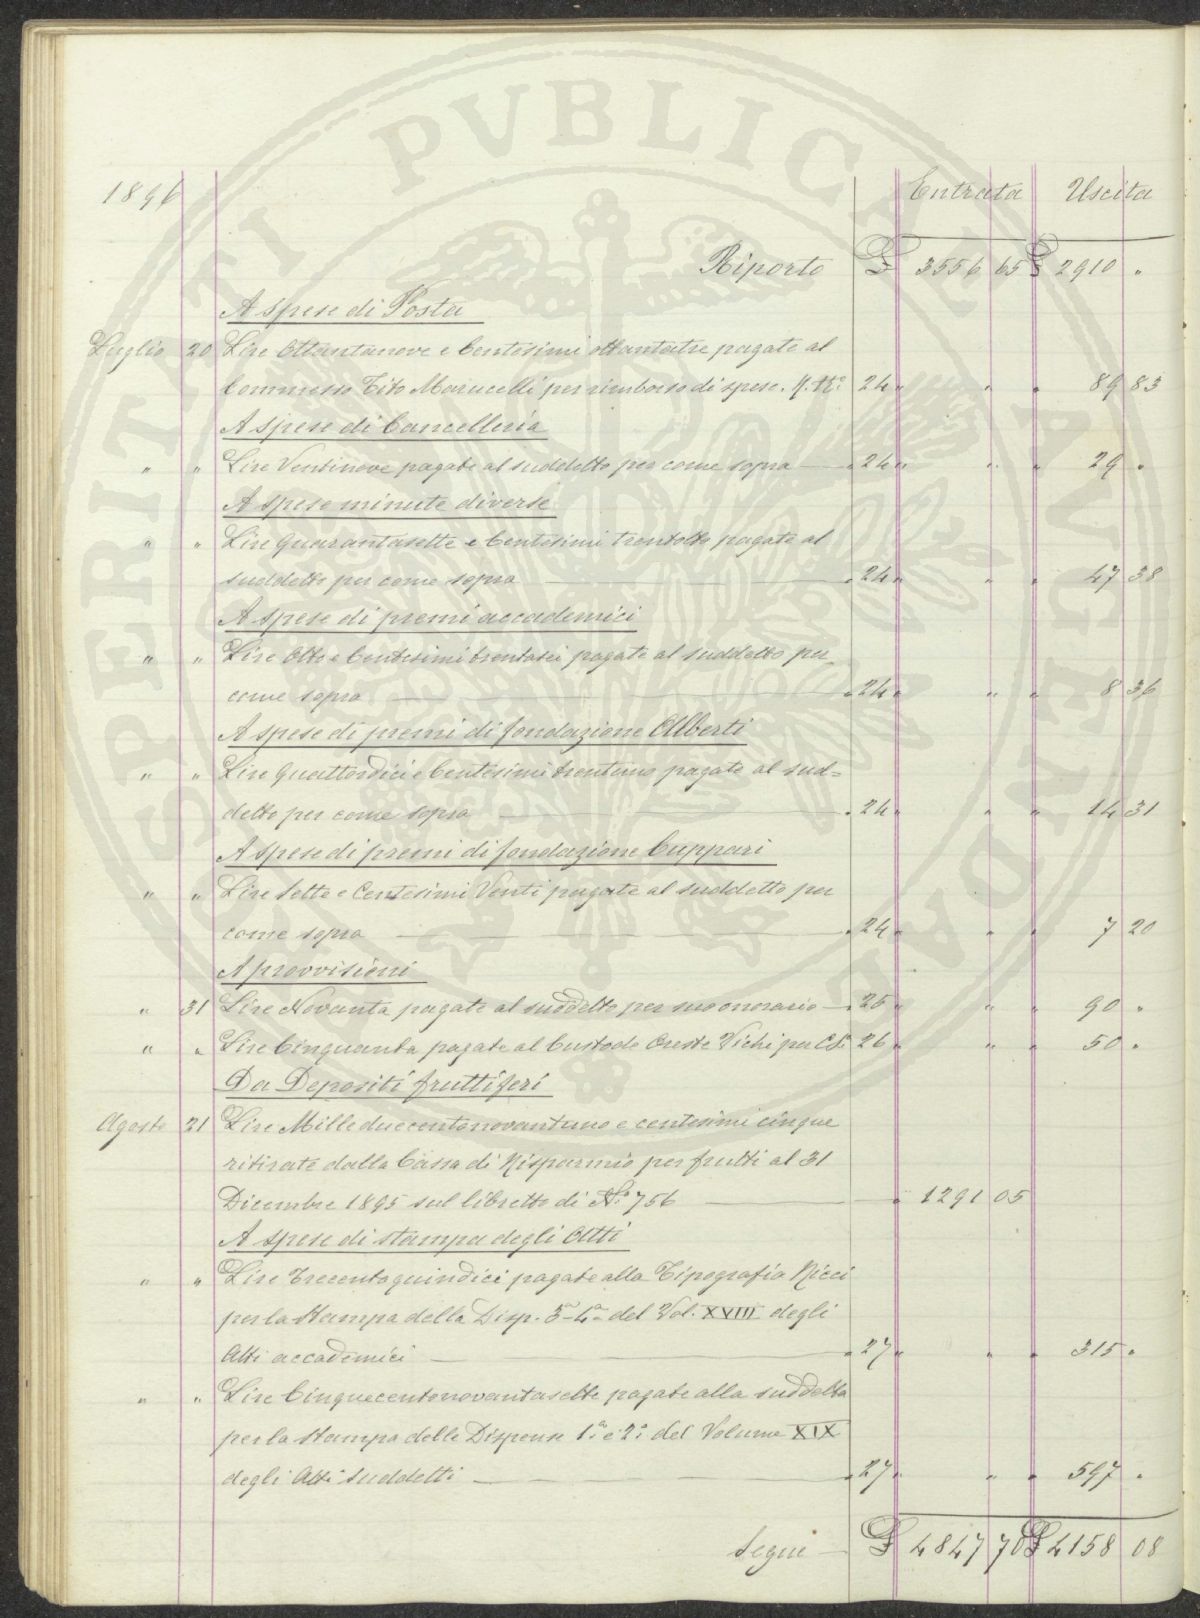 PROSPERITATI PVBLICAE AVGENDAE
1896 Entrata Uscita
Riporto £ 3556 65 £ 2910 "
A spese di Posta
Luglio 20 Lire Ottantanove e Centesimi ottantatre pagate al
Commesso Tito Marucelli per rimborso di spese. 24 " " " 89 83
A spese di Cancelleria
" " Lire Ventinove pagate al suddetto per come sopra — " 24 " " " 29 "
A spese minute diverse
" " Lire Quarantasette e Centesimi trentotto pagate al
suddetto per come sopra — " 24 " " " 47 38
A spese di premi accademici
" " Lire Otto e Centesimi trentasei pagate al suddetto per
come sopra — " 24 " " " 8 36
A spese di premi di fondazione Alberti
" " Lire Quattordici e Centesimi trentuno pagate al sud=
detto per come sopra — " 24 " " " 14 31
A spese di premi di fondazione Cuppari
" " Lire Sette e Centesimi Venti pagate al suddetto per
come sopra — " 24 " " " 7 20
A provvisioni
" 31 Lire Novanta pagate al suddetto per suo onorario — " 25 " " " 90 "
" " Lire Cinquanta pagate al Custode Oreste Vichi per 26 " " " 50 "
Da Depositi fruttiferi
Agosto 21 Lire Milleduecentonovantuno e centesimi cinque
ritirate dalla Cassa di Risparmio per frutti al 31
Dicembre 1895 sul libretto di N.° 756 — " 1291 05
A spese di stampa degli Atti
" " Lire Trecentoquindici pagate alla Tipografia Ricci
per la stampa della Disp. 3ª-4ª del Vol. XVIII degli
Atti accademici — " 27 " " " 315 "
" " Lire Cinquecentonovantasette pagate alla suddetta
per la stampa delle Dispense 1ª e 2ª del Volume XIX
degli Atti suddetti — " 27 " " " 597 "
Segue — £ 4847 70 £ 4158 08